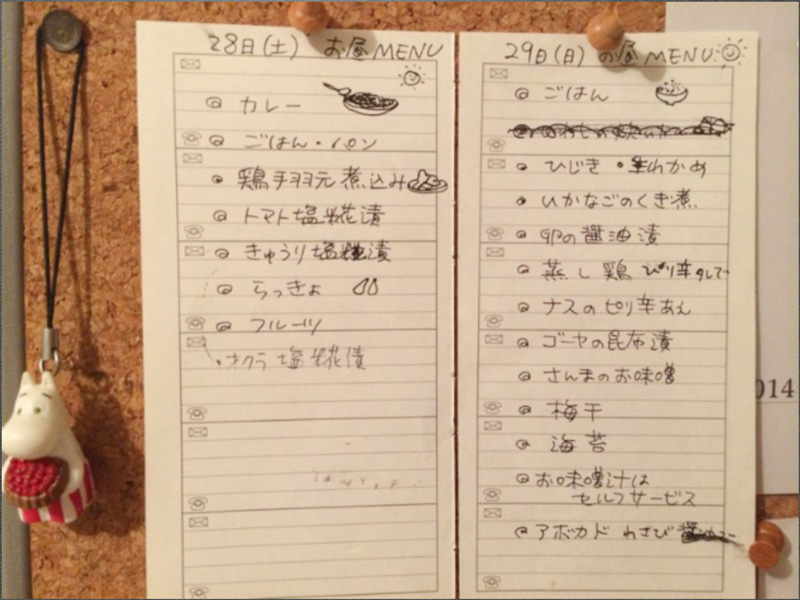 28日(土) お昼MENU
カレー
ごはん・パン
鶏手羽元煮込み
トマト塩糀漬
きゅうり塩糀漬
らっきょ
フルーツ
・オクラ塩糀漬
29日(日) お昼MENU
ごはん
ひじき・生わかめ
いかなごのくぎ煮
卵の醤油漬
蒸し鶏 ピリ辛
ナスのピリ辛あん
ゴーヤの昆布漬
さんまのお味噌
梅干
海苔
お味噌汁は
セルフサービス
アボカド わさび
014